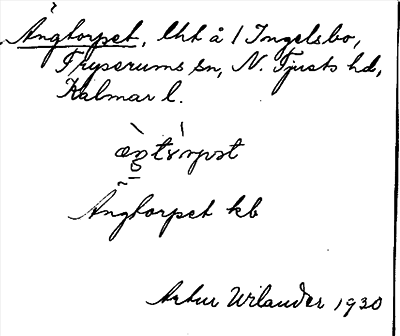 Ängtorpet, lht å 1 Ingelsbo,
Tryserums sn, N. Tjusts hd,
Kalmar l.
Ängtorpet kb
Artur Wilander 1930